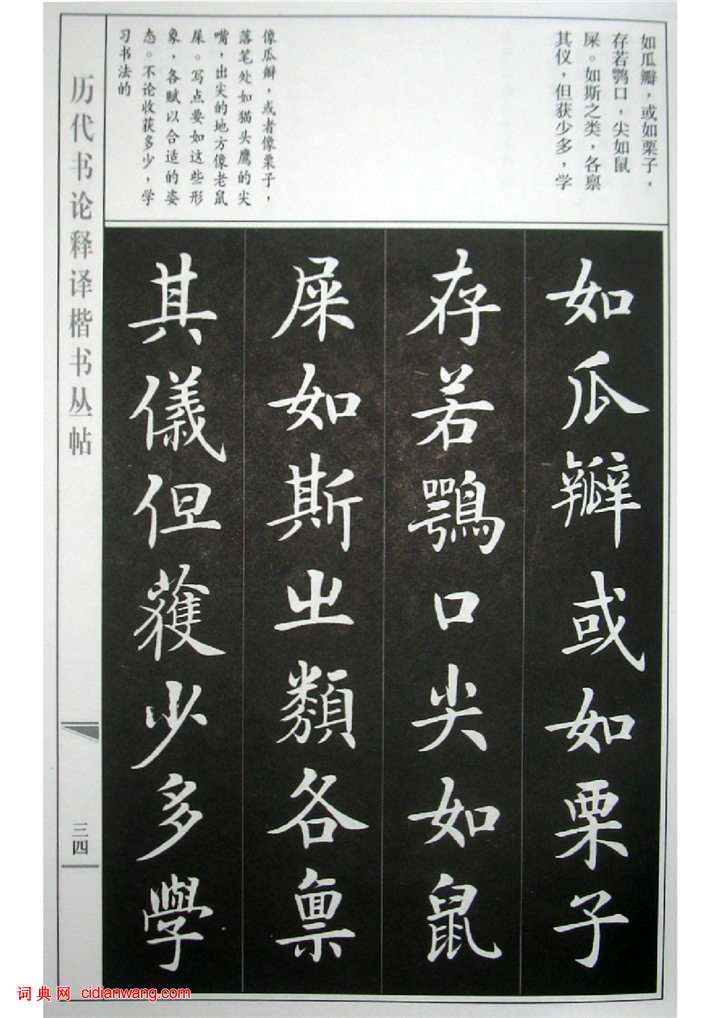 如瓜瓣，或如栗子，
存若鹗口，尖如鼠
屎。如斯之类，各禀
其仪，但获少多，学
像瓜瓣，或者像栗子，
落笔处如猫头鹰的尖
嘴，出尖的地方像老鼠
屎。写点要如这些形
象，各赋以合适的姿
态。不论收获多少，学
习书法的
如瓜瓣或如栗子
存若鶚口尖如鼠
屎如斯之類各稟
其儀但獲少多學
历代书论释译楷书丛帖
三四
词典网 cidianwang.com